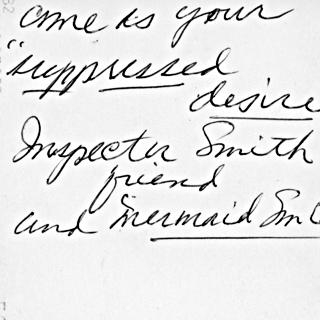 ame is your
"suppressed
desire
Inspecter Smith
friend
and mermaid Sm